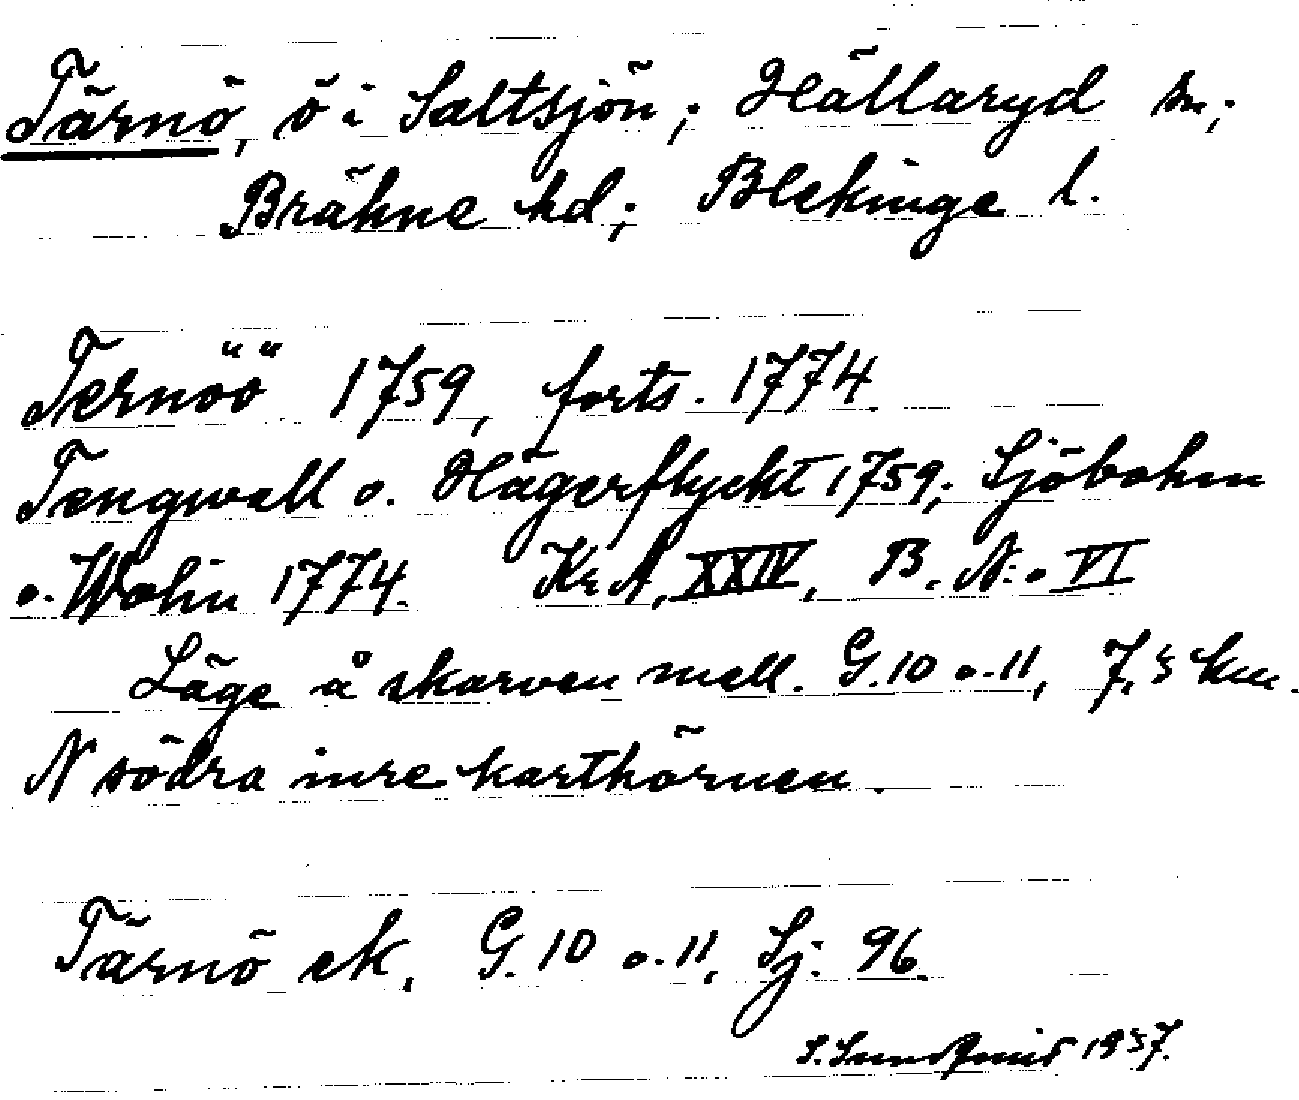 Tärnö, ö i Saltsjön; Hällaryd sn;
Bräkne hd; Blekinge l.
Ternöö 1759, forts. 1774.
Tengwall o. Hägerflyckt 1759; Sjöbohm
o. Wohin 1774. Kr A, XXIV, B. N:o VI
Läge å skarven mell. G. 10 o. 11, 7,5 km.
N södra inre karthörnen.
Tärnö ek. G. 10 o. 11. Sj. 96.
S. Sundqvist 1937.